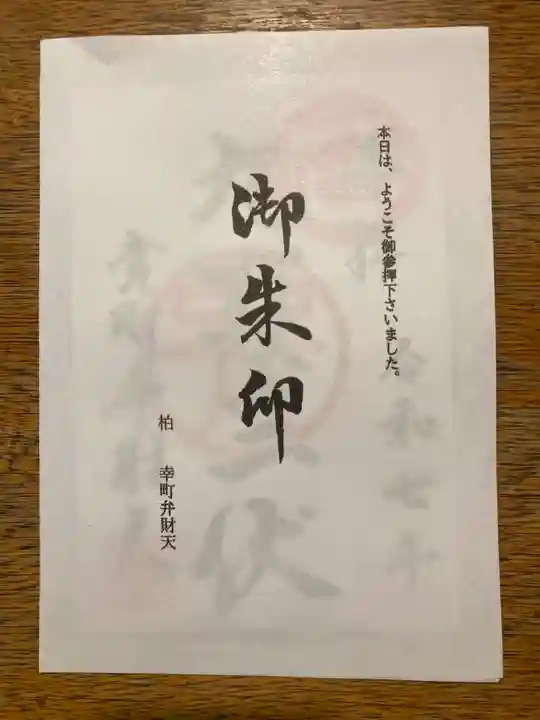 本日は、ようこそ御参拝下さいました。
御朱印
柏 幸町弁財天
令和七年